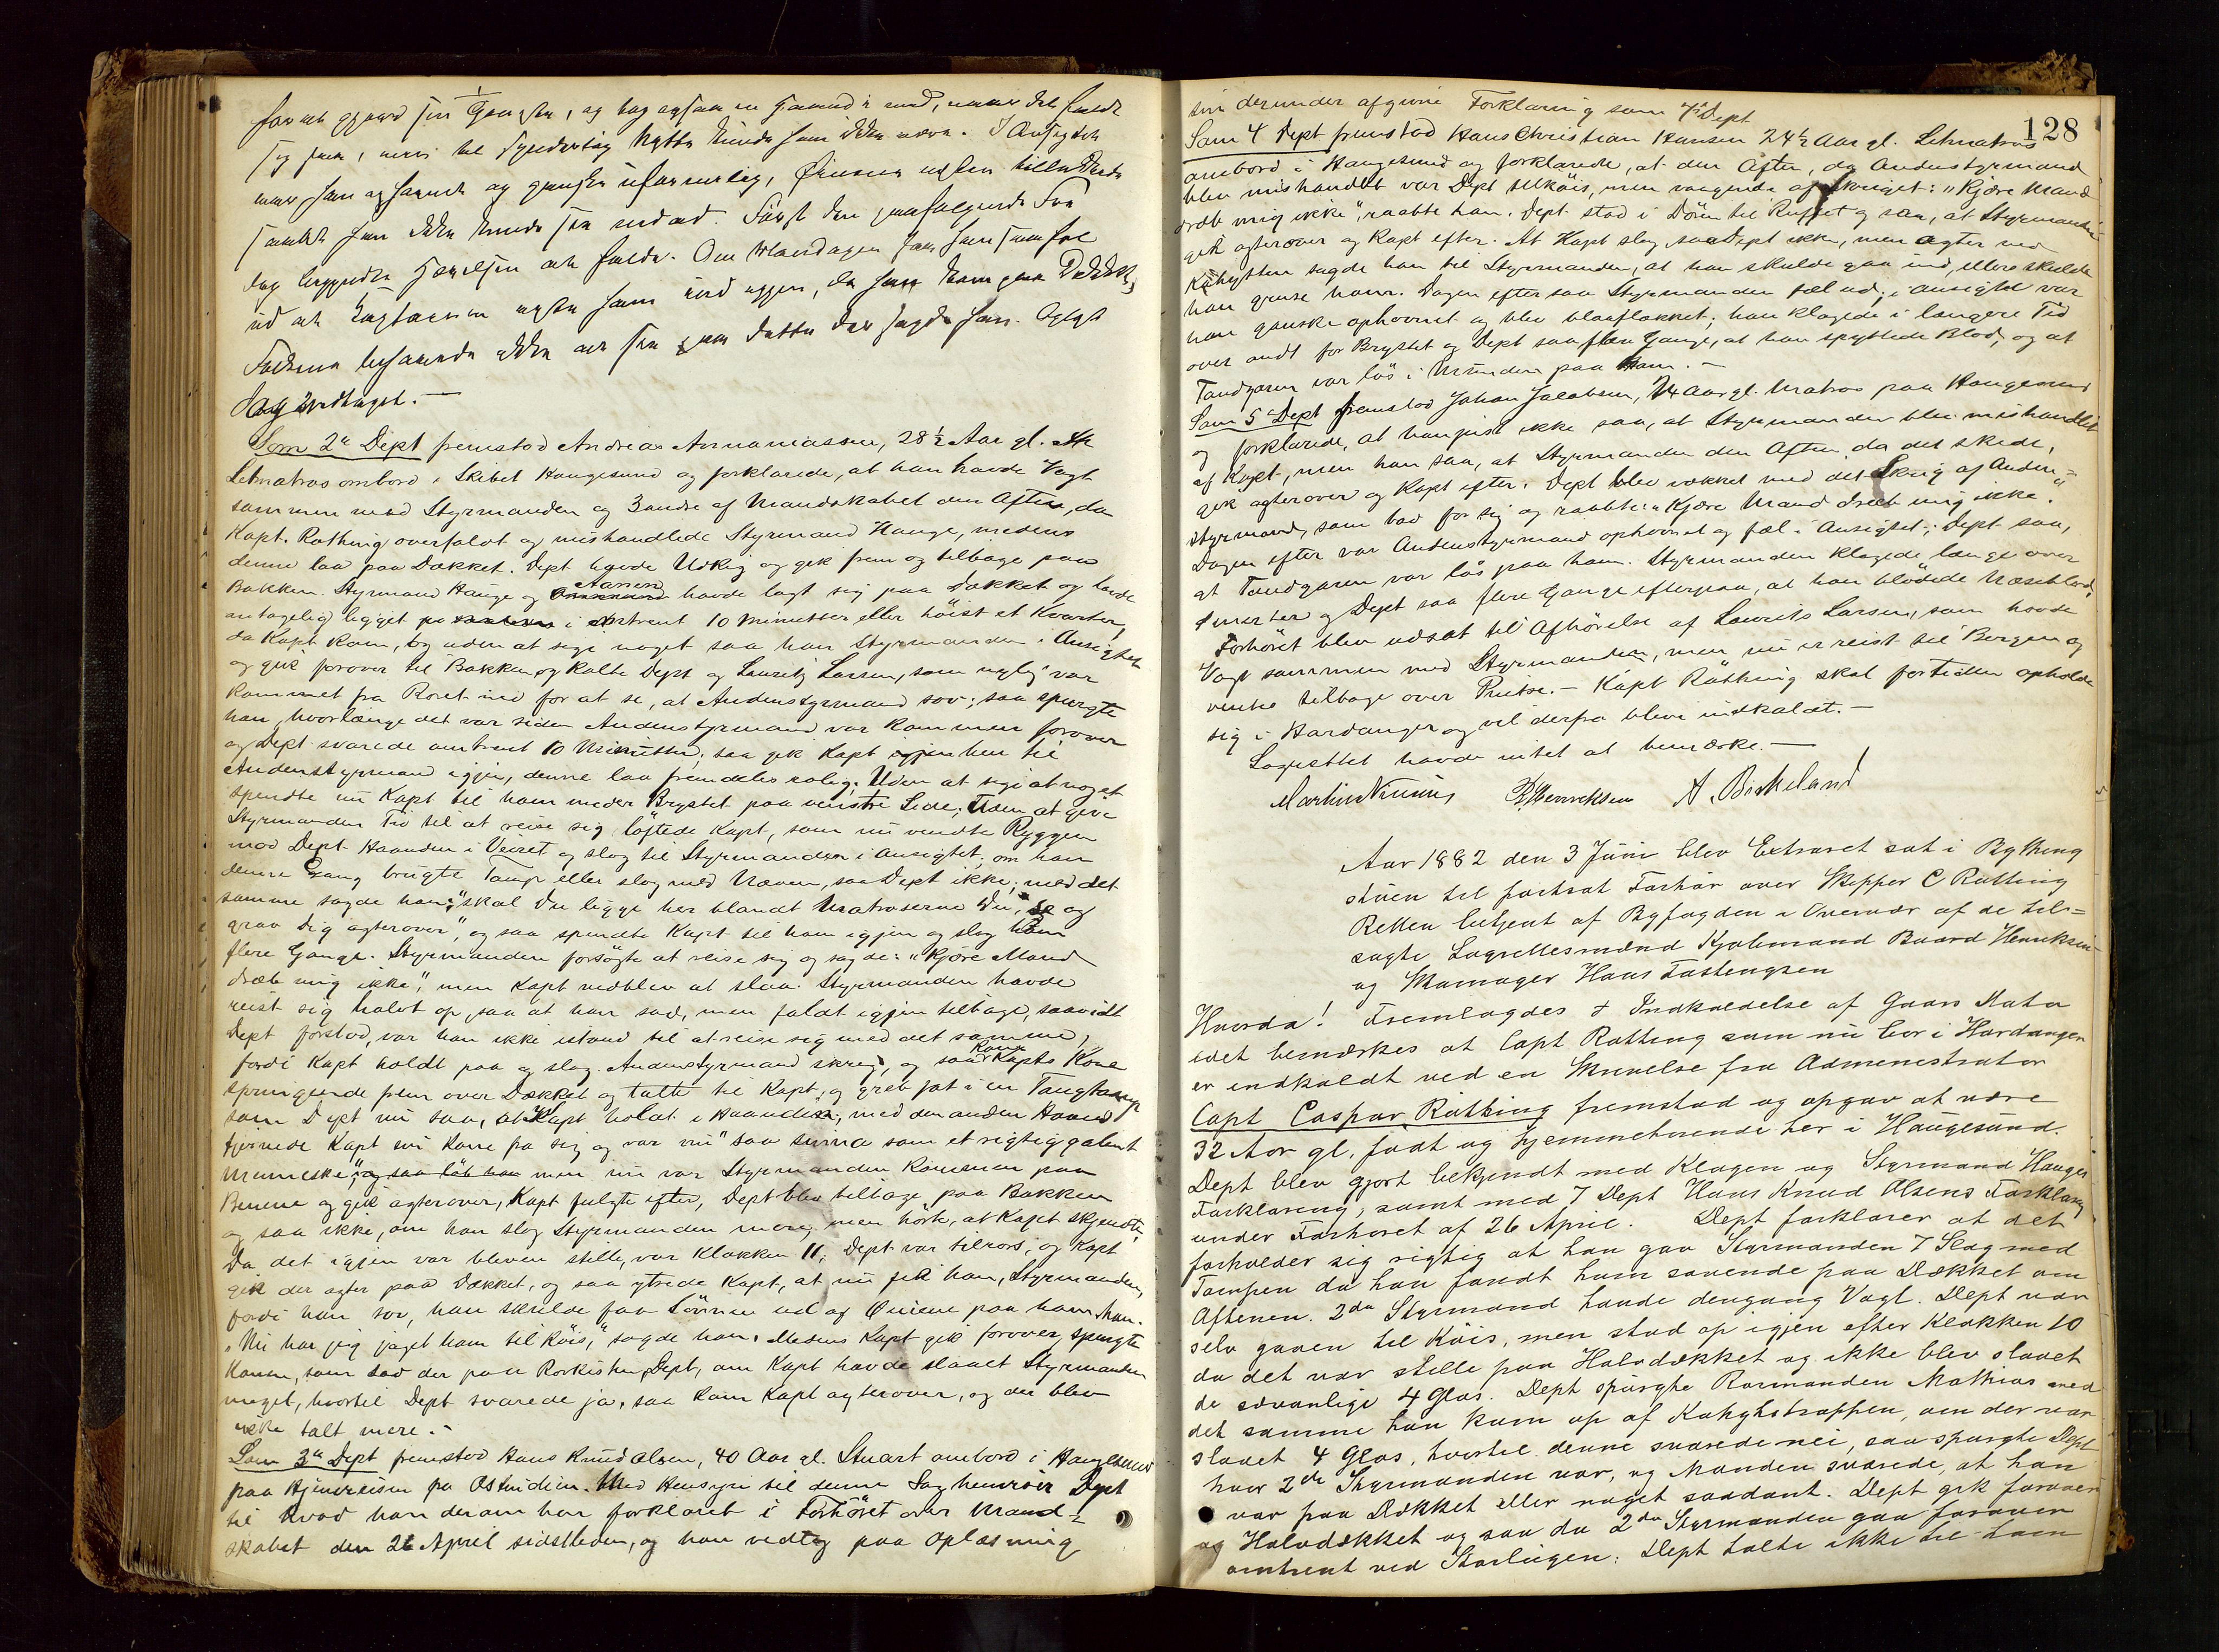 for at gjøre sin Tjeneste, og tog ogsaa en Haand i med, naar det faldt
sig saa, men til synderlig Nytte kunde han ikke være. I Ansigtet
var han ophovnet og ganske uformelig, Øinene næsten tillukkede
samt han ikke kunde se ud ad. Først den paafølgende Fre
dag begyndte Hævelsen at falde. Om Mandagen saa han saa fæl
ud at Kaptainen viste ham ned igjen, da han kom paa Dækket,
Folkene behøvede ikke at se paa dette der sagde han. Oplæst
Vedtaget. —
Som 2n Dept fremstod Andreas Annaniassen, 28½ Aar gl.
Letmatros ombord i Skibet Haugesund og forklarede, at han havde Vagt
sammen med Styrmanden og 3 andre af Mandskabet den Aften, da
Kapt. Røthing overfalot og mishandlede Styrmand Hauge, medens
denne laa paa Dækket. Dept havde Udkig og gik frem og tilbage paa
Bakken. Styrmand Hauge og Aanen havde lagt sig paa Dækket og havde
antagelig ligget i omtrent 10 Minutter eller höist et Kvarter,
da Kapt kom, og uden at sige noget saa han Styrmanden i Ansigtet
og gik forover til Bakken og kalte Dept og Lauritz Larsen, som nylig var
kommet fra Roret ned for at se, at Andenstyrmand sov; saa spurgte
han, hvorlænge det var siden Andenstyrmand var kommen forover
og Dept svarede omtrent 10 Minutter, saa gik Kapt igjen hen til
Andenstyrmand igjen, denne laa fremdeles rolig. Uden at sige et noget
spendte nu Kapt til ham under Brystet paa venstre Side; Uden at give
Styrmanden Tid til at reise sig löftede Kapt, som nu vendte Ryggen
mod Dept Haanden i Veiret og slog til Styrmanden i Ansigtet, om han
denne Gang brugte Tamp eller slog med Næven, saa Dept ikke; med det
samme sagde han: "skal Du ligge her blandt Matroserne Du, se og
grav Dig agterover", og saa spendte Kapt til ham igjen og slog ham
flere Gange. Styrmanden forsögte at reise sig og sagde: "Kjære Mand
dræb mig ikke", men Kapt vedblev at slaa. Styrmanden havde
reist sig halvt op, saa at han sad, men faldt igjen tilbage, saavidt
Dept forstod, var han ikke istand til at reise sig med det samme,
fordi Kapt holdt paa og slog. Andenstyrmand skreg, og saa kom Kapts Kone
springende frem over Dækket og talte til Kapt, og greb fat i en Taugtamp
som Dept nu saa, at Kapt holdt i Haanden, med den anden Haand
fjernede Kapt sin Kone fra sig og var nu "saa sinna som et rigtig galent
Menneske", og saa löb han men nu var Styrmanden kommen paa
Benene og gik agterover, Kapt fulgte efter, Dept blev tilbage paa Bakken
og saa ikke, om han slog Styrmanden mere, men hörte, at Kapt skjendte.
Da det igjen var bleven stille, var Klokken 11; Dept var tilrors, og Kapt
gik der agter paa Dækket, og saa ytrede Kapt, at nu fik han, Styrmanden,
fordi han sov, han skulde faa Sövnen ud af Öinene paa ham, han.
"Nu har jeg jaget ham til köis," sagde han. Medens Kapt gik forover, spurgte
Konen, som sad der paa Rorkisten, Dept, om Kapt havde slaaet Styrmanden
meget, hvortil Dept svarede ja, saa kom Kapt agterover, og der blev
ikke talt mere. —
Som 3n Dept fremstod Hans Knud Olsen, 40 Aar gl. Stuart ombord i Haugesund
paa Hjemreisen fra Ostindien. Med Hensyn til denne Sag henviser Dept
til hvad han derom har forklaret i Forhöret over Mand=
skabet den 26 April sidstleden, og han vedtog paa Oplæsning
128
sin derunder afgivne Forklaring som 7de Dept
Som 4 Dept fremstod Hans Christian Hansen 24½ Aar gl. Letmatros
ombord i Haugesund og forklarede, at den Aften, da Andenstyrmand
blev mishandlet var Dept tilköis, men vaagnede af Skriget: "Kjære Mand
dræb mig ikke", raabte han. Dept stod i Dören til Ruffet og saa, at Styrmanden
gik agterover og Kapt efter. At Kapt slog, saa Dept ikke, men agter ved
Kahytten sagde han til Styrmanden, at han skulde gaa ind, ellers skulde
han gruse ham. Dagen efter saa Styrmanden fæl ud; i Ansigtet var
han ganske ophovnet og blev blaaflekket; han klagede i længere Tid
over ondt for Brystet og Dept saa flere Gange, at han spyttede Blod, og at
Tandgaren var lös i Munden paa ham. —
Som 5 Dept fremstod Johan Jakobsen, 24 Aar gl. Matros paa Haugesund
og forklarede, at han just ikke saa, at Styrmanden blev mishandlet
af Kapt, men han saa, at Styrmanden den Aften, da det skede,
gik agterover og Kapt efter. Dept blev vækket med det Skrig af Anden=
styrmand, som bad for sig og raabte: "Kjære Mand dræb mig ikke."
Dagen efter var Andenstyrmand ophovnet og fæl i Ansigtet; Dept saa,
at Tandgaren var lös paa ham. Styrmanden klagede længe over
Smerter og Dept saa flere Gange efterpaa, at han blödede Næseblod.
Forhöret blev udsat til Afhörelse af Laurits Larsen, som havde
Vagt sammen med Styrmanden, men nu er reist til Bergen og
ventes tilbage over Pintse. — Kapt Röthing skal fortiden opholde
sig i Hardanger og vil derfra blive indkaldt. —
Lagrettet havde intet at bemærke. —
Martin Nissing B Henriksen A. Birkeland
Aar 1882 den 3 Juni blev Extraret sat i Bything
stuen til fortsat Forhör over Skipper C Røthing
Retten betjent af Byfogden i Overvær af de til=
sagte Lagrettesmænd Kjøbmand Baard Henriksen
og Skomager Hans Tostengsen
Hvorda! Fremlagdes ÷ Indkaldelse af Gaars Dato
idet bemærkes at Capt Røthing som nu bor i Hardanger
er indkaldt ved en Skrivelse fra Administrator
Capt Caspar Røthing fremstod og opgav at være
32 Aar gl, født og hjemmehørende her i Haugesund.
Dept blev gjort bekjendt med Klagen og Styrmand Hauges
Forklaring, samt med 7 Dept Hans Knud Olsens Forklaring
under Forhøret af 26 April. Dept forklarer at det
forholder sig rigtig at han gav Styrmanden 7 Slag med
Tampen da han fandt ham sovende paa Dækket om
Aftenen. 2den Styrmand havde dengang Vagt. Dept var
selv gaaen til Köis, men stod op igjen efter Klokken 10
da det var stille paa Halvdækket og ikke blev slaaet
de sedvanlige 4 Glas. Dept spurgte Rormanden Mathias med
det samme han kom op af Kahytstrappen, om der var
slaaet 4 Glas, hvortil denne svarede nei, saa spurgte Dept
hvor 2den Styrmanden var, og Manden svarede, at han
var paa Dækket eller noget saadant. Dept gik forover
og Halvdækket og saa da 2den Styrmanden gaa forover
omtrent ved Storlugen: Dept talte ikke til ham